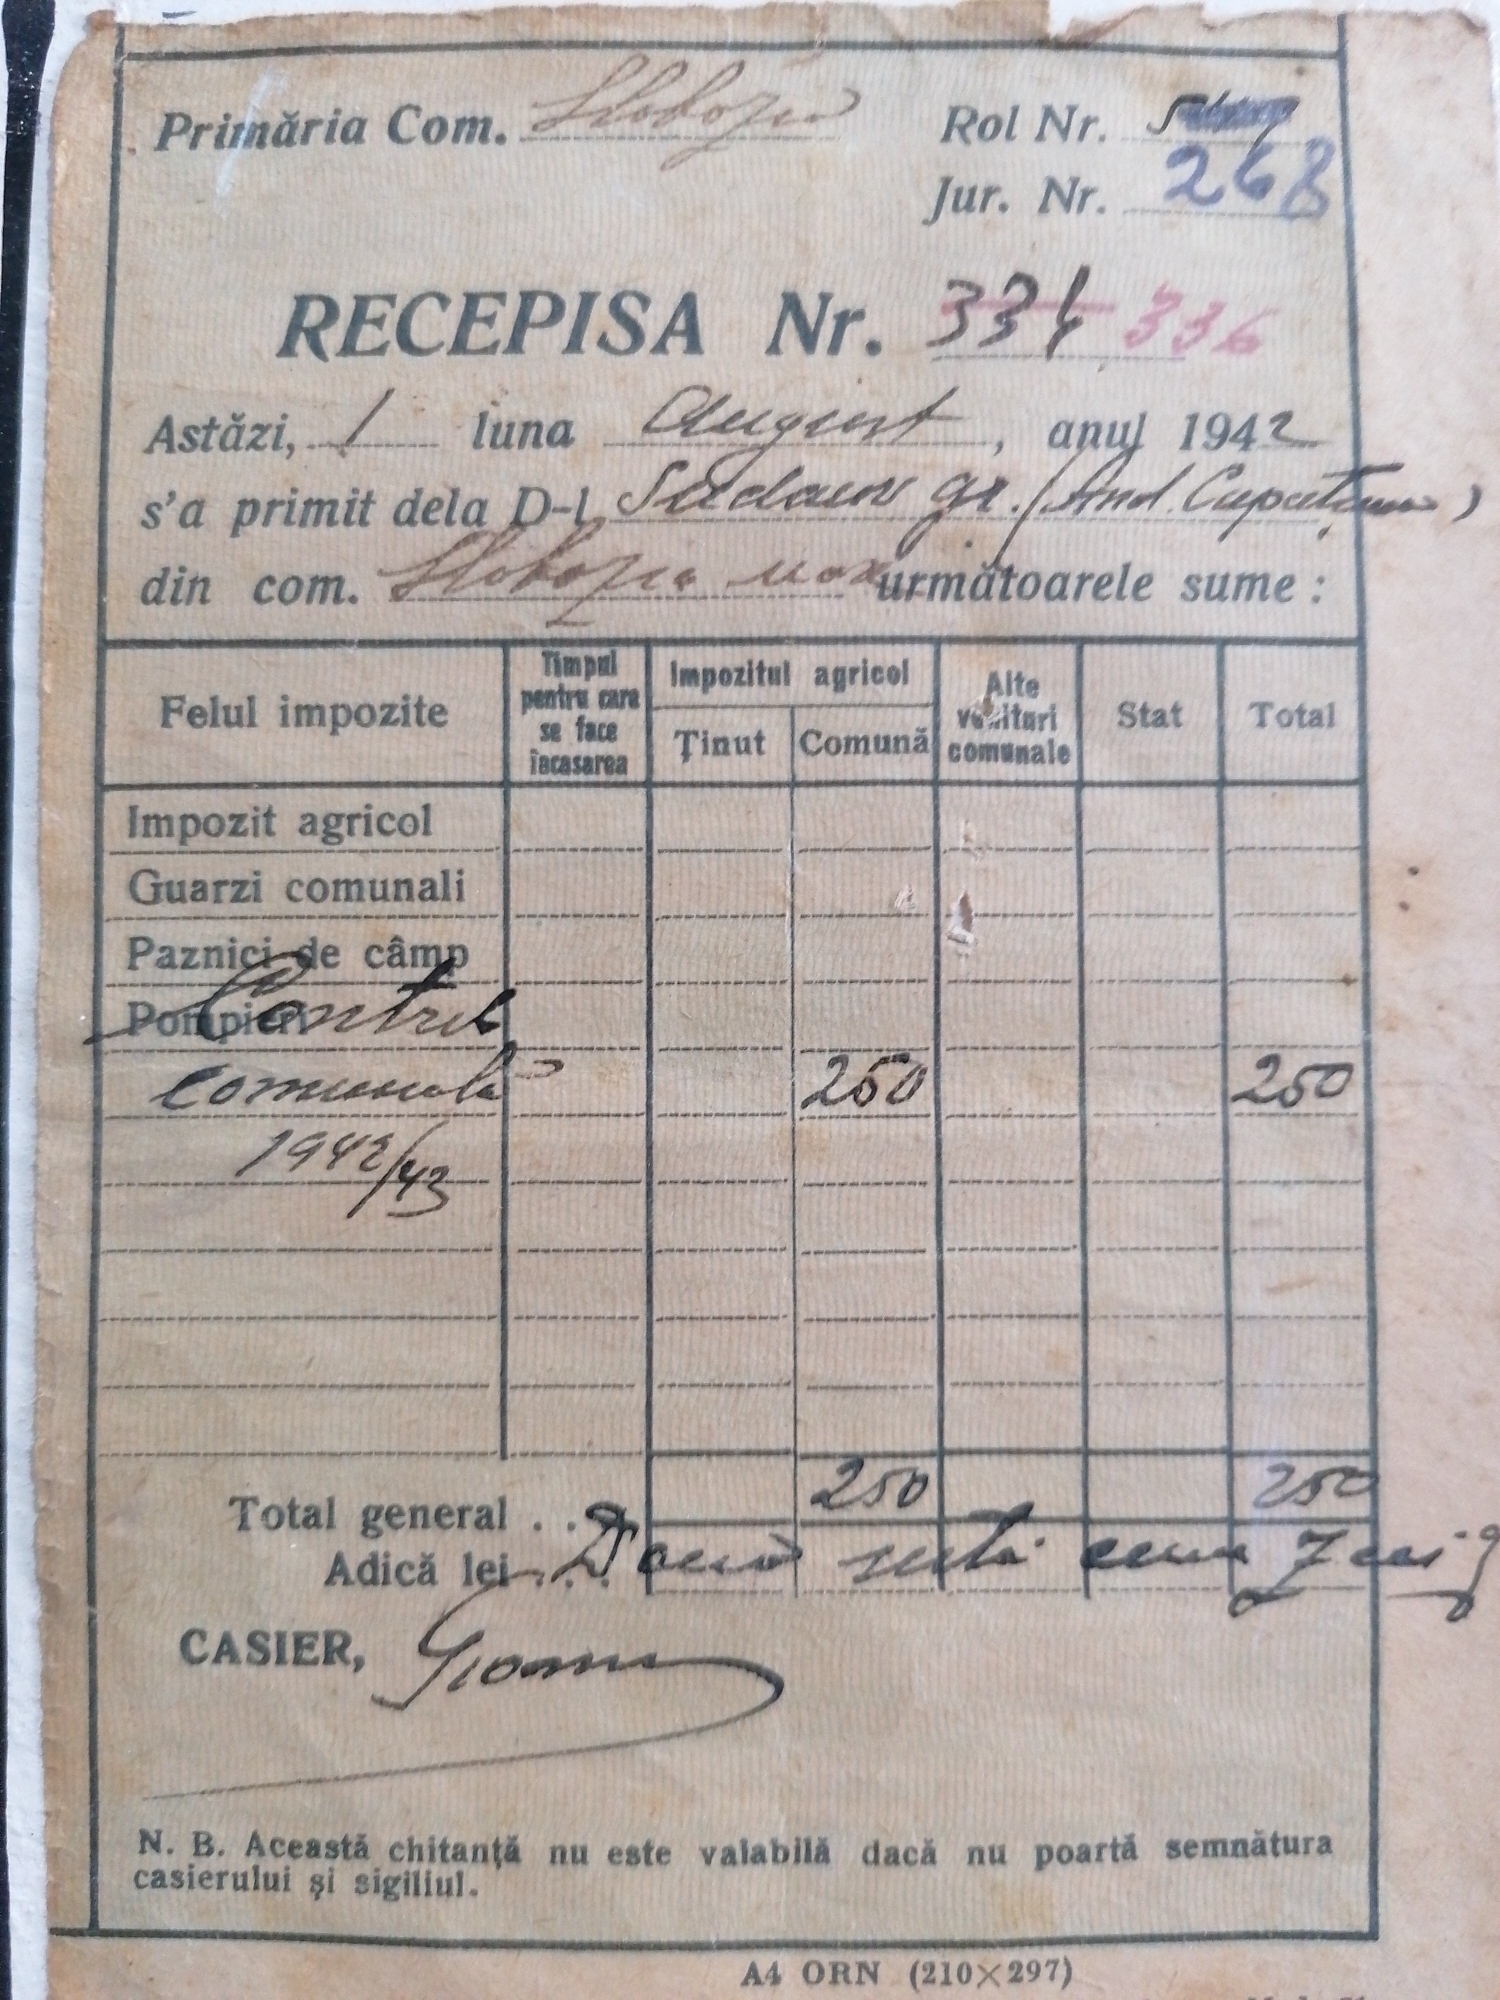 Primăria Com. Slobozia Rol Nr.
Jur. Nr. 268
RECEPISA Nr. 334 336
Astăzi, 1 luna August, anul 1942
s'a primit dela D-l gr. (And.
din com. Slobozia următoarele sume :
Felul impozite
Timpul pentru care se face încasarea
Impozitul agricol
Ținut
Comună
Alte venituri comunale
Stat
Total
Impozit agricol
Guarzi comunali
Paznici de câmp
Pompieri Contrib
comunala 250 250
1942/43
Total general . . 250 250
Adică lei . . . Două sute cinci zeci
CASIER,
N. B. Această chitanță nu este valabilă dacă nu poartă semnătura
casierului și sigiliul.
A4 ORN (210×297)